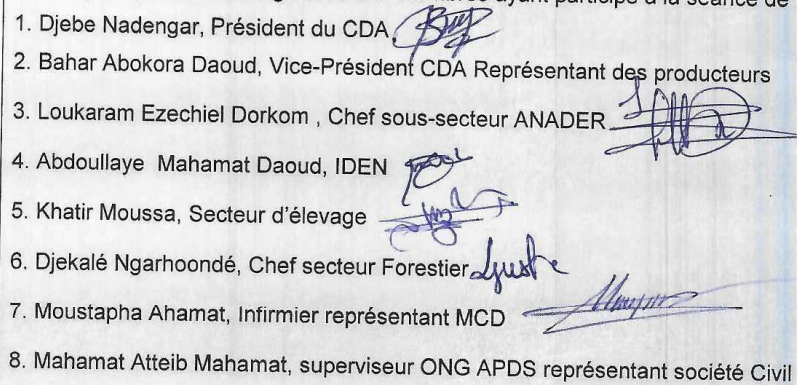 ayant participé à la séance de
1. Djebe Nadengar, Président du CDA
2. Bahar Abokora Daoud, Vice-Président CDA Représentant des producteurs
3. Loukaram Ezechiel Dorkom , Chef sous-secteur ANADER
4. Abdoullaye Mahamat Daoud, IDEN
5. Khatir Moussa, Secteur d'élevage
6. Djekalé Ngarhoondé, Chef secteur Forestier
7. Moustapha Ahamat, Infirmier représentant MCD
8. Mahamat Atteib Mahamat, superviseur ONG APDS représentant société Civil